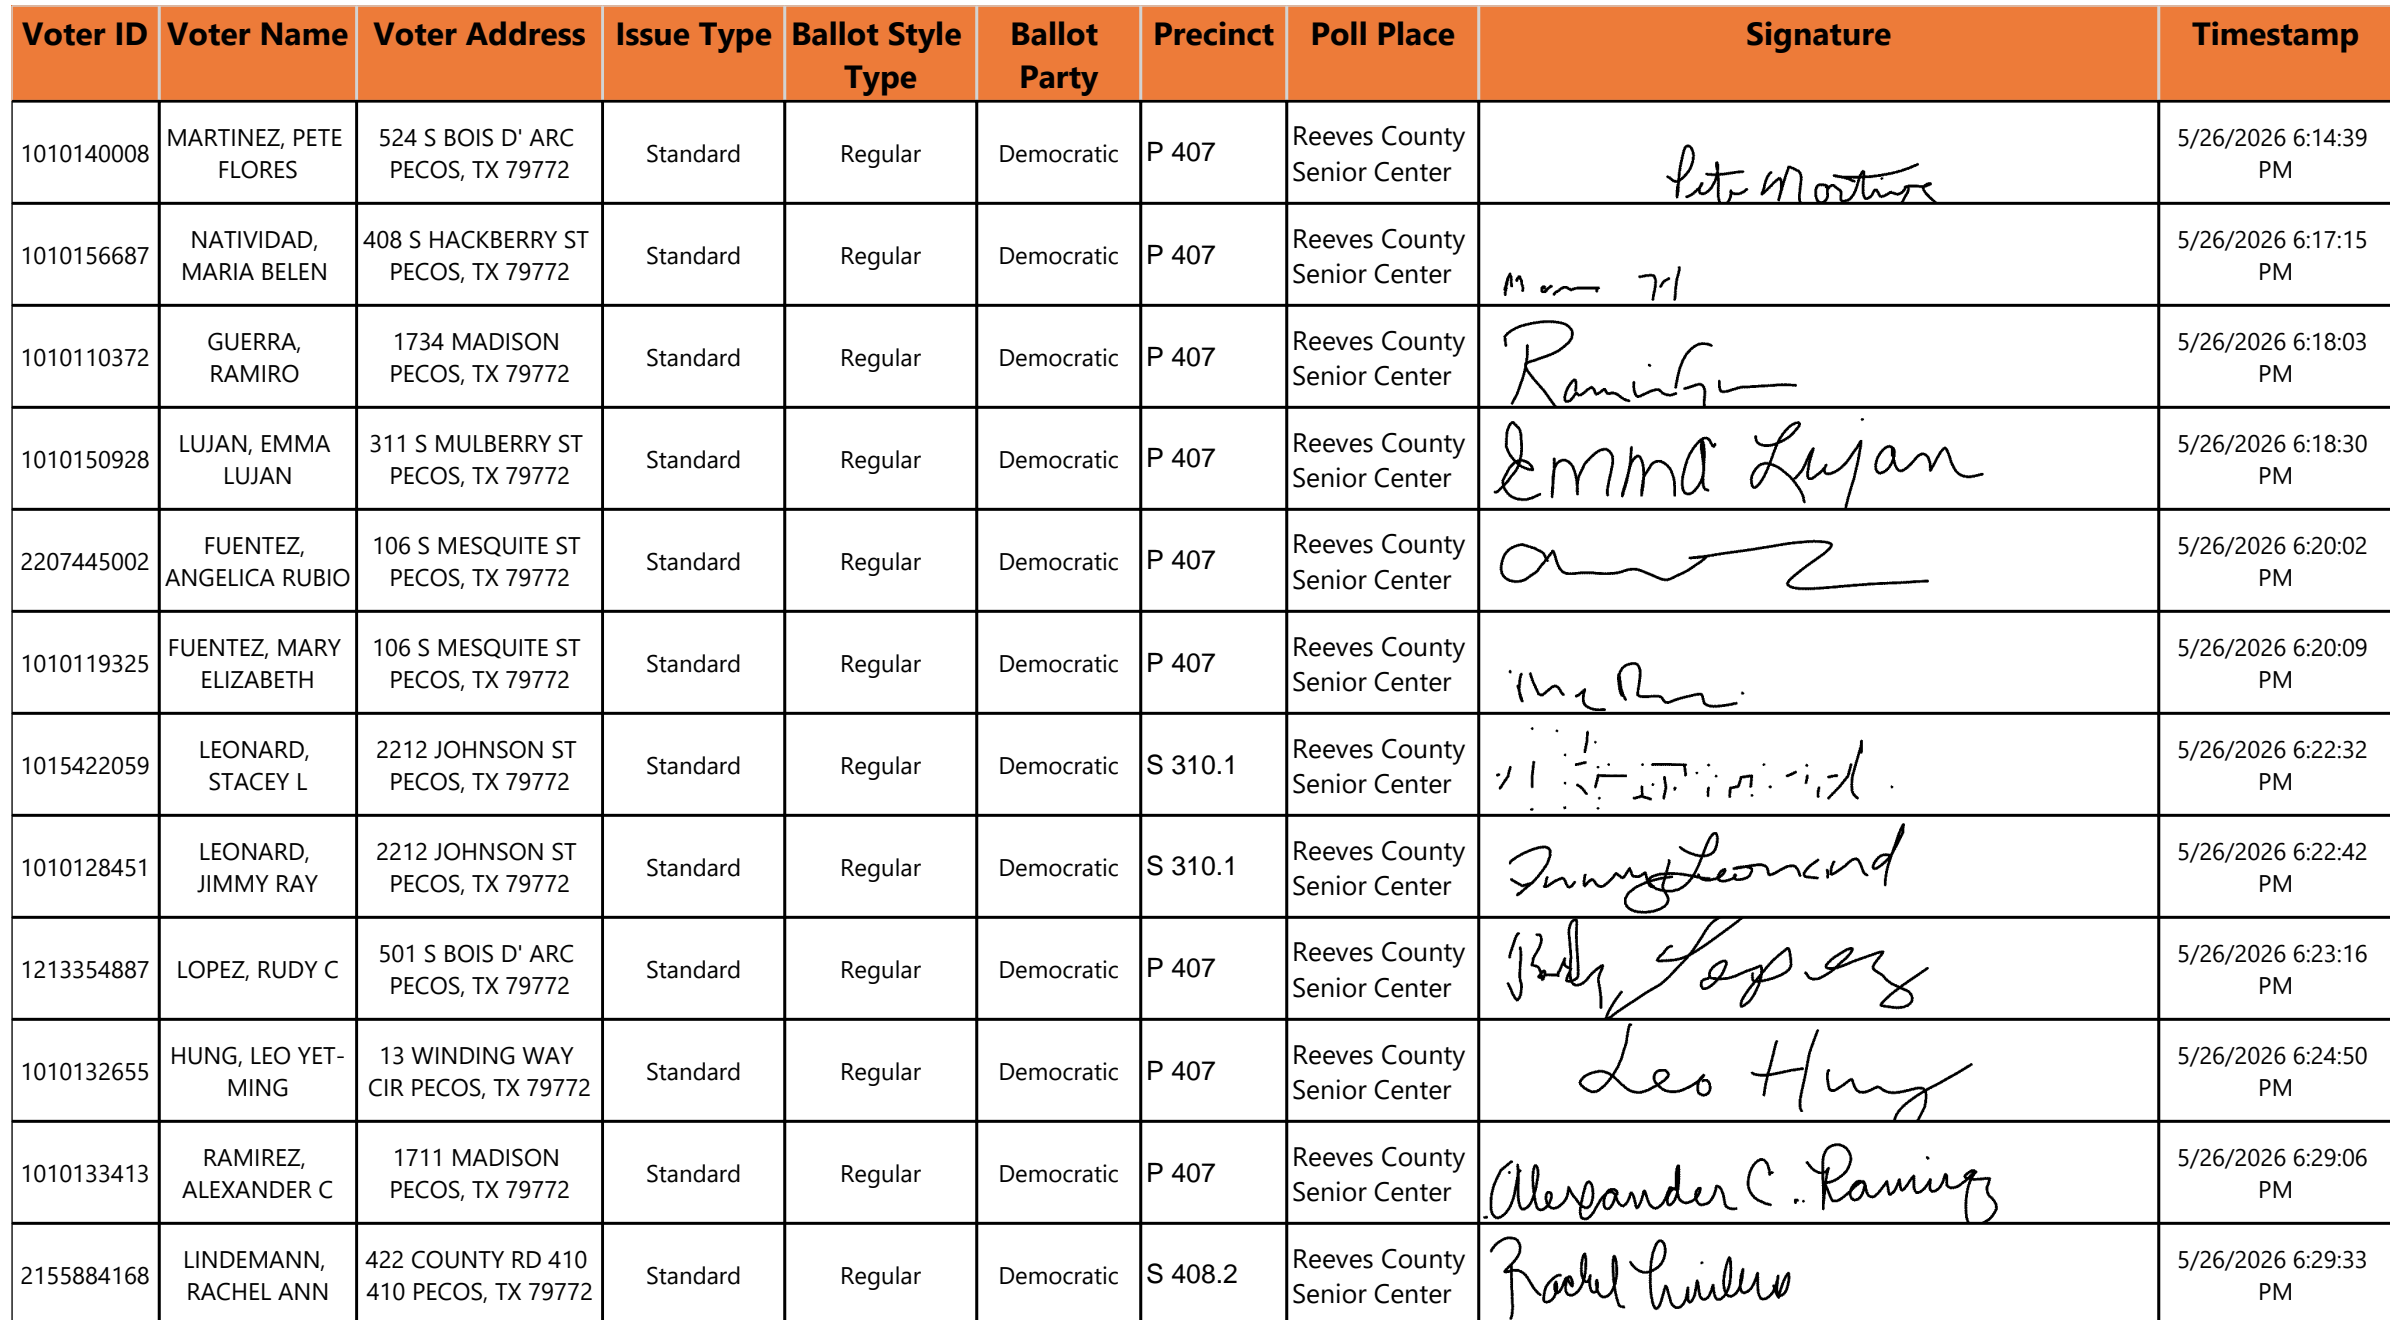 Voter ID Voter Name Voter Address Issue Type Ballot Style Type Ballot Party Precinct Poll Place Signature Timestamp
1010140008 MARTINEZ, PETE FLORES 524 S BOIS D' ARC PECOS, TX 79772 Standard Regular Democratic P 407 Reeves County Senior Center Pete 5/26/2026 6:14:39 PM
1010156687 NATIVIDAD, MARIA BELEN 408 S HACKBERRY ST PECOS, TX 79772 Standard Regular Democratic P 407 Reeves County Senior Center 5/26/2026 6:17:15 PM
1010110372 GUERRA, RAMIRO 1734 MADISON PECOS, TX 79772 Standard Regular Democratic P 407 Reeves County Senior Center 5/26/2026 6:18:03 PM
1010150928 LUJAN, EMMA LUJAN 311 S MULBERRY ST PECOS, TX 79772 Standard Regular Democratic P 407 Reeves County Senior Center Emma Lujan 5/26/2026 6:18:30 PM
2207445002 FUENTEZ, ANGELICA RUBIO 106 S MESQUITE ST PECOS, TX 79772 Standard Regular Democratic P 407 Reeves County Senior Center 5/26/2026 6:20:02 PM
1010119325 FUENTEZ, MARY ELIZABETH 106 S MESQUITE ST PECOS, TX 79772 Standard Regular Democratic P 407 Reeves County Senior Center 5/26/2026 6:20:09 PM
1015422059 LEONARD, STACEY L 2212 JOHNSON ST PECOS, TX 79772 Standard Regular Democratic S 310.1 Reeves County Senior Center 5/26/2026 6:22:32 PM
1010128451 LEONARD, JIMMY RAY 2212 JOHNSON ST PECOS, TX 79772 Standard Regular Democratic S 310.1 Reeves County Senior Center Jimmy Leonard 5/26/2026 6:22:42 PM
1213354887 LOPEZ, RUDY C 501 S BOIS D' ARC PECOS, TX 79772 Standard Regular Democratic P 407 Reeves County Senior Center Rudy Lopez 5/26/2026 6:23:16 PM
1010132655 HUNG, LEO YET-MING 13 WINDING WAY CIR PECOS, TX 79772 Standard Regular Democratic P 407 Reeves County Senior Center Leo Hung 5/26/2026 6:24:50 PM
1010133413 RAMIREZ, ALEXANDER C 1711 MADISON PECOS, TX 79772 Standard Regular Democratic P 407 Reeves County Senior Center Alexander C. Ramirez 5/26/2026 6:29:06 PM
2155884168 LINDEMANN, RACHEL ANN 422 COUNTY RD 410 410 PECOS, TX 79772 Standard Regular Democratic S 408.2 Reeves County Senior Center Rachel 5/26/2026 6:29:33 PM